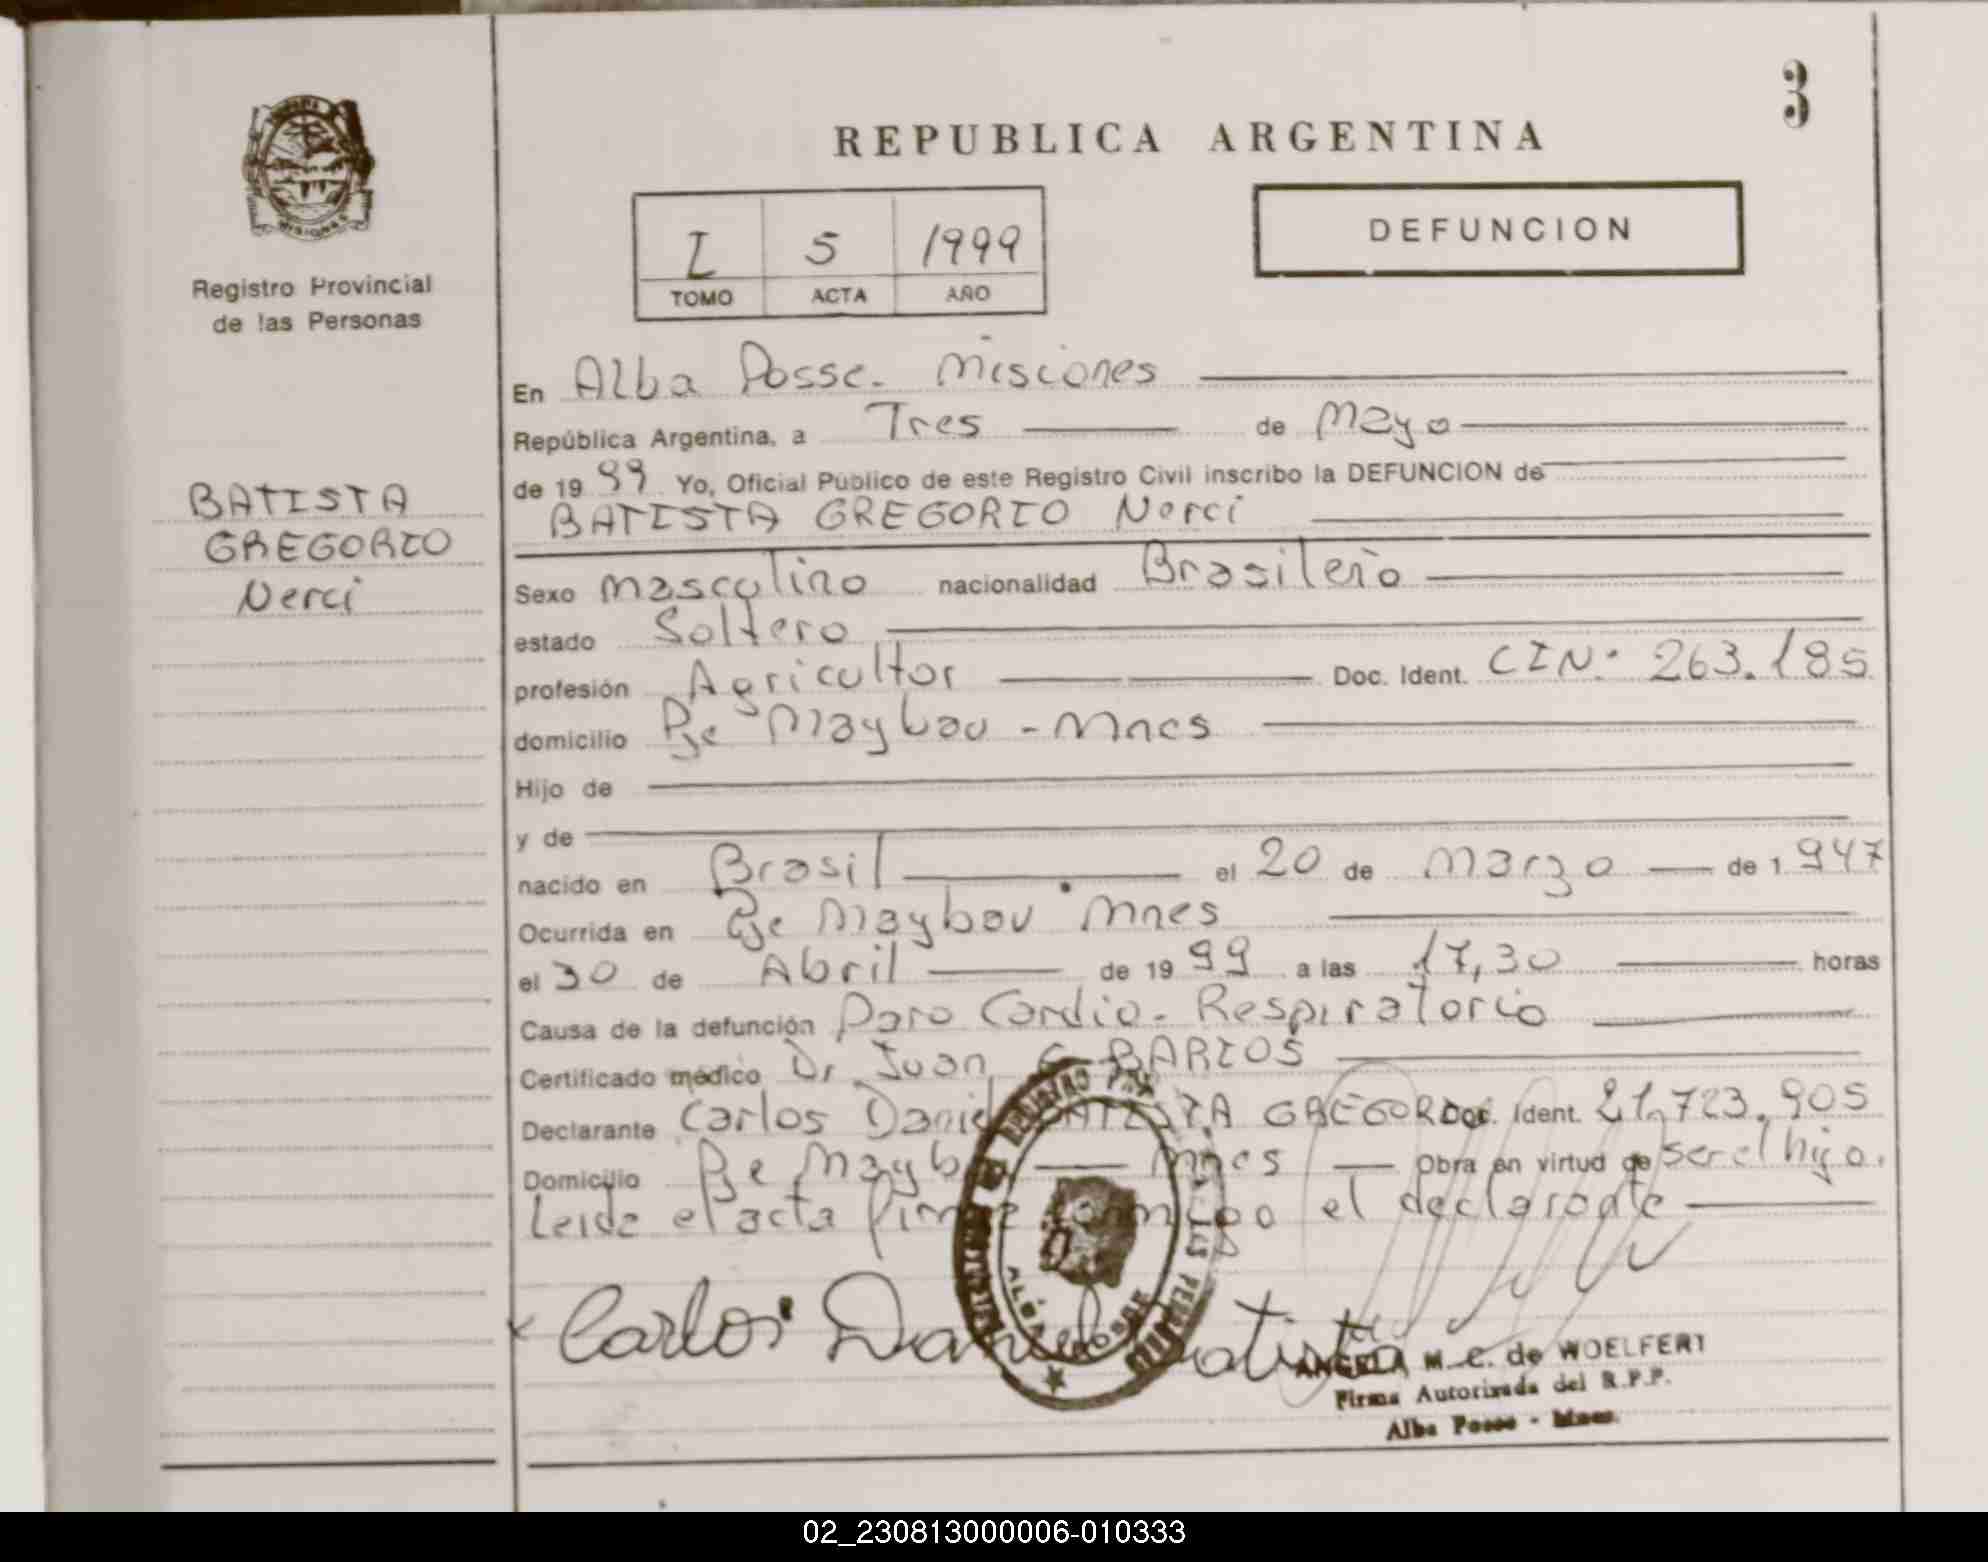 3
REPUBLICA ARGENTINA
DEFUNCION
I 5 1999
TOMO ACTA AÑO
MISIONES
Registro Provincial
de las Personas
BATISTA
GREGORIO
Nerci
En Alba Posse. Misiones
República Argentina, a Tres de Mayo
de 19 99 Yo, Oficial Público de este Registro Civil inscribo la DEFUNCION de
BATISTA GREGORIO Nerci
Sexo Masculino nacionalidad Brasileño
estado Soltero
profesión Agricultor Doc. Ident. CIN: 263.185
domicilio Pje Maybau - Mnes
Hijo de
y de
nacido en Brasil el 20 de Marzo de 1.947
Ocurrida en Pje Maybau Mnes
el 30 de Abril de 19 99 a las 17,30 horas
Causa de la defunción Paro Cardio-Respiratorio
Certificado médico Dr Juan BARIOS
Declarante Carlos Daniel BATISTA GREGORIO Doc. Ident. 21.723.905
Domicilio Pje Maybau Mnes Obra en virtud de ser el hijo.
Leida el acta firma conmigo el declarante
Carlos Daniel Batista
ALBA POSSE
ANGELA M. C. de WOELFERT
Firma Autorizada del R.P.P.
Alba Posse - Mnes.
02_230813000006-010333